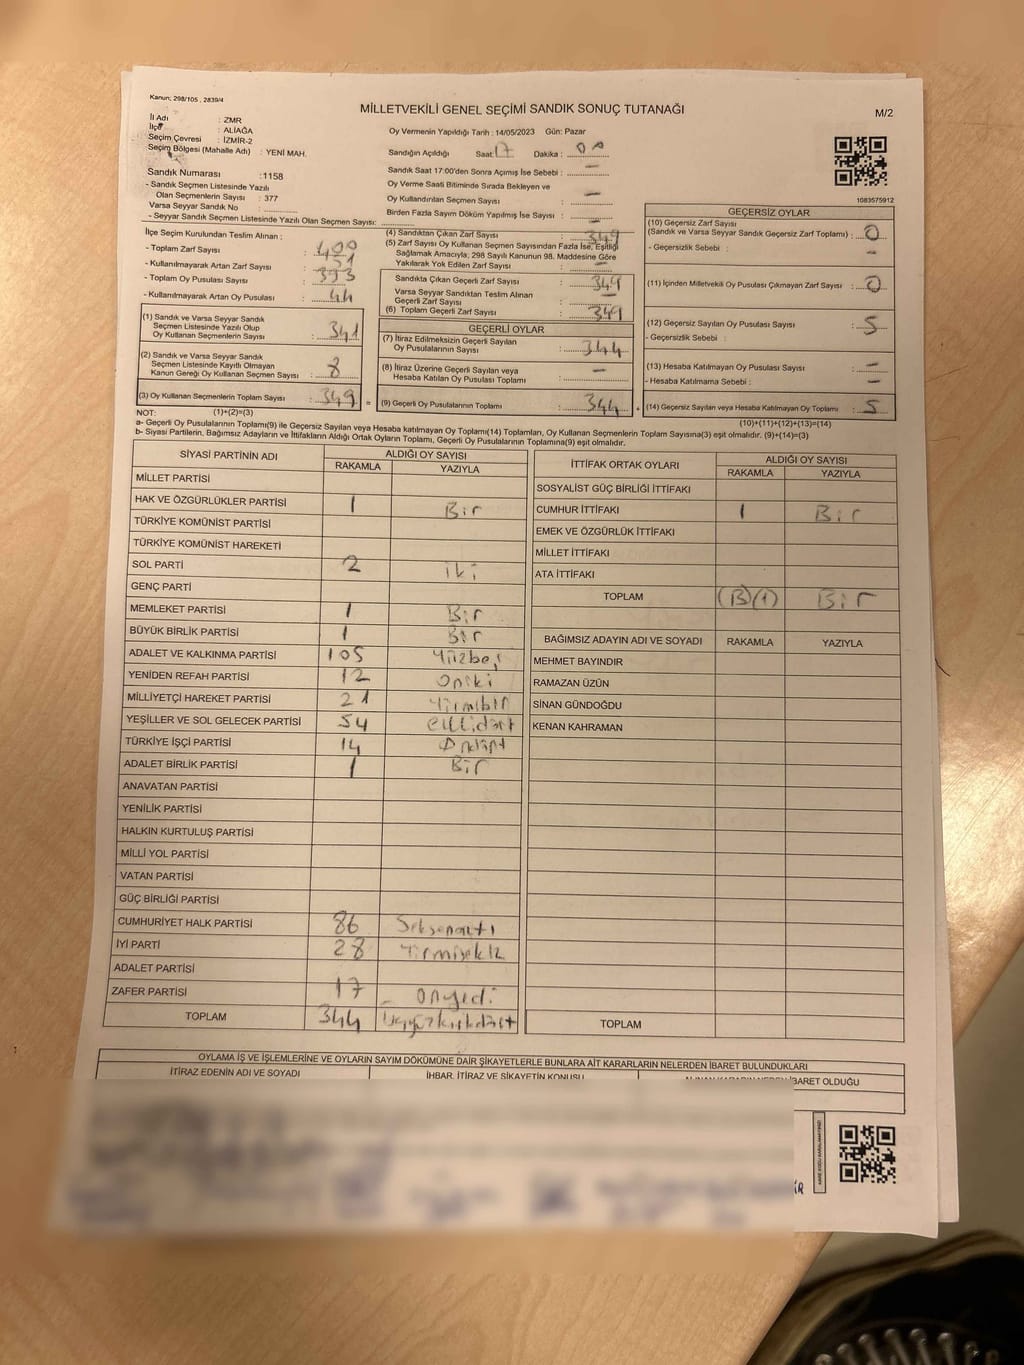 Kanun; 298/105 , 2839/4
MİLLETVEKİLİ GENEL SEÇİMİ SANDIK SONUÇ TUTANAĞI
M/2
İl Adı : ZMR
İlçe : ALİAĞA
Seçim Çevresi : İZMİR-2
Seçim Bölgesi (Mahalle Adı) : YENİ MAH.
Sandık Numarası :1158
- Sandık Seçmen Listesinde Yazılı
Olan Seçmenlerin Sayısı : 377
Varsa Seyyar Sandık No :
- Seyyar Sandık Seçmen Listesinde Yazılı Olan Seçmen Sayısı:
Oy Vermenin Yapıldığı Tarih : 14/05/2023 Gün: Pazar
Sandığın Açıldığı Saat: 17 Dakika : 00
Sandık Saat 17:00'den Sonra Açımış İse Sebebi : —
Oy Verme Saati Bitiminde Sırada Bekleyen ve
Oy Kullandırılan Seçmen Sayısı : —
Birden Fazla Sayım Döküm Yapılmış İse Sayısı : —
1083575912
İlçe Seçim Kurulundan Teslim Alınan ;
- Toplam Zarf Sayısı : 400
- Kullanılmayarak Artan Zarf Sayısı : 51
- Toplam Oy Pusulası Sayısı : 393
- Kullanılmayarak Artan Oy Pusulası : 44
(1) Sandık ve Varsa Seyyar Sandık
Seçmen Listesinde Yazılı Olup
Oy Kullanan Seçmenlerin Sayısı : 341
(2) Sandık ve Varsa Seyyar Sandık
Seçmen Listesinde Kayıtlı Olmayan
Kanun Gereği Oy Kullanan Seçmen Sayısı : 8
(3) Oy Kullanan Seçmenlerin Toplam Sayısı : 349 =
(4) Sandıktan Çıkan Zarf Sayısı : 349
(5) Zarf Sayısı Oy Kullanan Seçmen Sayısından Fazla İse, Eşitliği
Sağlamak Amacıyla, 298 Sayılı Kanunun 98. Maddesine Göre
Yakılarak Yok Edilen Zarf Sayısı : —
Sandıkta Çıkan Geçerli Zarf Sayısı : 349
Varsa Seyyar Sandıktan Teslim Alınan
Geçerli Zarf Sayısı : —
(6) Toplam Geçerli Zarf Sayısı : 349
GEÇERLİ OYLAR
(7) İtiraz Edilmeksizin Geçerli Sayılan
Oy Pusulalarının Sayısı : 344
(8) İtiraz Üzerine Geçerli Sayılan veya
Hesaba Katılan Oy Pusulası Toplamı : —
(9) Geçerli Oy Pusulalarının Toplamı : 344 +
GEÇERSİZ OYLAR
(10) Geçersiz Zarf Sayısı
(Sandık ve Varsa Seyyar Sandık Geçersiz Zarf Toplamı) : 0
- Geçersizlik Sebebi : —
(11) İçinden Milletvekili Oy Pusulası Çıkmayan Zarf Sayısı : 0
(12) Geçersiz Sayılan Oy Pusulası Sayısı : 5
- Geçersizlik Sebebi :
(13) Hesaba Katılmayan Oy Pusulası Sayısı : —
- Hesaba Katılmama Sebebi : —
(14) Geçersiz Sayılan veya Hesaba Katılmayan Oy Toplamı : 5
NOT: (1)+(2)=(3)
(10)+(11)+(12)+(13)=(14)
a- Geçerli Oy Pusulalarının Toplamı(9) ile Geçersiz Sayılan veya Hesaba Katılmayan Oy Toplamı(14) Toplamları, Oy Kullanan Seçmenlerin Toplam Sayısına(3) eşit olmalıdır. (9)+(14)=(3)
b- Siyasi Partilerin, Bağımsız Adayların ve İttifakların Aldığı Ortak Oyların Toplamı, Geçerli Oy Pusulalarının Toplamına(9) eşit olmalıdır.
SİYASİ PARTİNİN ADI ALDIĞI OY SAYISI
RAKAMLA YAZIYLA
MİLLET PARTİSİ
HAK VE ÖZGÜRLÜKLER PARTİSİ 1 Bir
TÜRKİYE KOMÜNİST PARTİSİ
TÜRKİYE KOMÜNİST HAREKETİ
SOL PARTİ 2 iki
GENÇ PARTİ
MEMLEKET PARTİSİ 1 Bir
BÜYÜK BİRLİK PARTİSİ 1 Bir
ADALET VE KALKINMA PARTİSİ 105 Yüzbeş
YENİDEN REFAH PARTİSİ 12 Oniki
MİLLİYETÇİ HAREKET PARTİSİ 21 Yirmibir
YEŞİLLER VE SOL GELECEK PARTİSİ 54 Ellidört
TÜRKİYE İŞÇİ PARTİSİ 14 Ondört
ADALET BİRLİK PARTİSİ 1 Bir
ANAVATAN PARTİSİ
YENİLİK PARTİSİ
HALKIN KURTULUŞ PARTİSİ
MİLLİ YOL PARTİSİ
VATAN PARTİSİ
GÜÇ BİRLİĞİ PARTİSİ
CUMHURİYET HALK PARTİSİ 86 Seksenaltı
İYİ PARTİ 28 Yirmisekiz
ADALET PARTİSİ
ZAFER PARTİSİ 17 Onyedi
TOPLAM 344 Üçyüzkırkdört
İTTİFAK ORTAK OYLARI ALDIĞI OY SAYISI
RAKAMLA YAZIYLA
SOSYALİST GÜÇ BİRLİĞİ İTTİFAKI
CUMHUR İTTİFAKI 1 Bir
EMEK VE ÖZGÜRLÜK İTTİFAKI
MİLLET İTTİFAKI
ATA İTTİFAKI
TOPLAM (B)(1) Bir
BAĞIMSIZ ADAYIN ADI VE SOYADI RAKAMLA YAZIYLA
MEHMET BAYINDIR
RAMAZAN ÜZÜN
SİNAN GÜNDOĞDU
KENAN KAHRAMAN
TOPLAM
OYLAMA İŞ VE İŞLEMLERİNE VE OYLARIN SAYIM DÖKÜMÜNE DAİR ŞİKAYETLERLE BUNLARA AİT KARARLARIN NELERDEN İBARET BULUNDUKLARI
İTİRAZ EDENİN ADI VE SOYADI İHBAR, İTİRAZ VE ŞİKAYETİN KONUSU ALINAN KARARIN NEDEN İBARET OLDUĞU